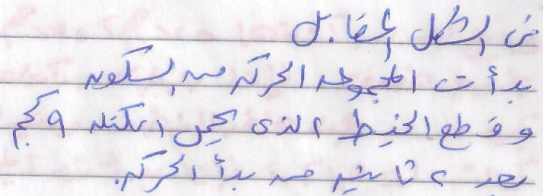 فى الشكل المقابل
بدأت المجموعة الحركة من السكون
و قطع الخيط الذى يحمل الكتلة ٩ كجم
بعد ٢ ثانية من بدأ الحركة.